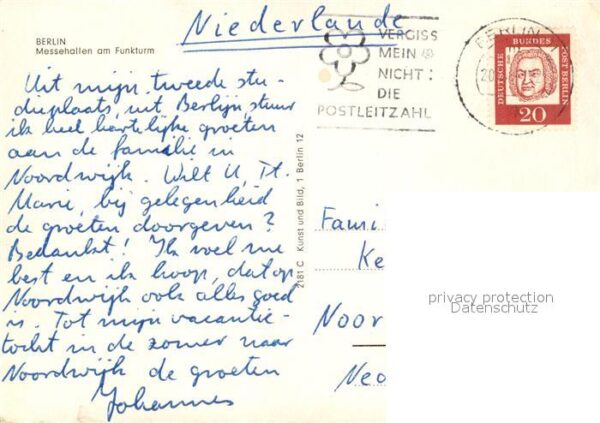 Niederlande
BERLIN
Messehallen am Funkturm
VERGISS
MEIN
NICHT:
DIE
POSTLEITZAHL
BERLIN
20
DEUTSCHE BUNDES POST BERLIN
20
Uit mijn tweede stu-
dieplaats, uit Berlijn stuur
ik heel hartelijke groeten
aan de familie in
Noordwijk. Wilt U, Tt.
Marie, bij gelegenheid
de groeten doorgeven?
Bedankt! Ik voel me
best en ik hoop, dat op
Noordwijk ook alles goed
is. Tot mijn vacantie-
tocht in de zomer naar
Noordwijk de groeten
Johannes
2181 C Kunst und Bild, 1 Berlin 12
Fami
Ke
Noor
Ned
privacy protection
Datenschutz